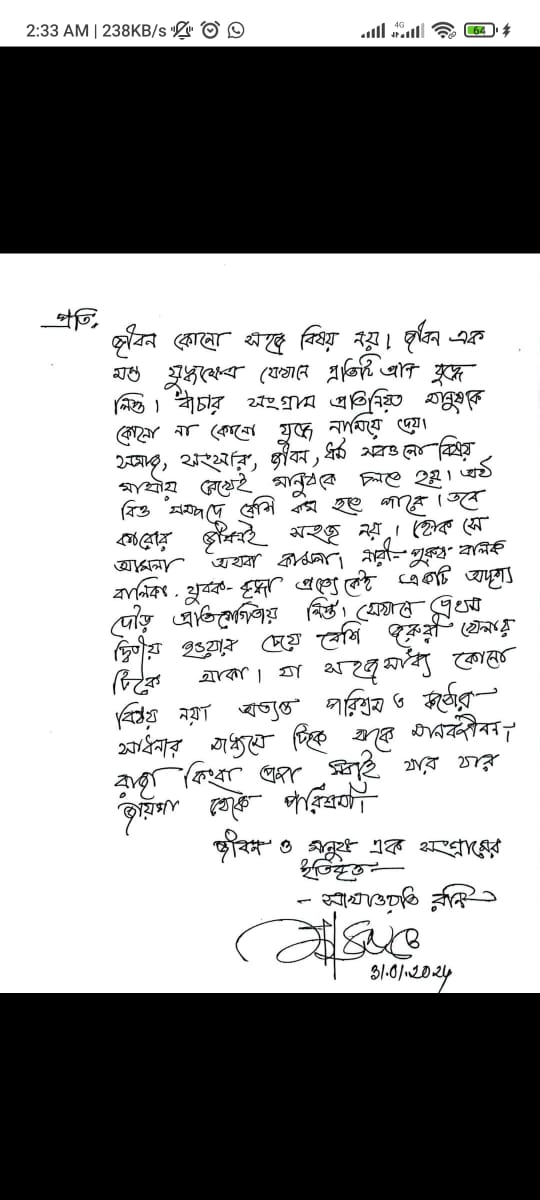 2:33 AM | 238KB/s
4G
64
প্রতি,
জীবন কোনো সহজ বিষয় নয়। জীবন এক
মস্ত যুদ্ধক্ষেত্র যেখানে প্রতিটি প্রাণ যুদ্ধে
লিপ্ত। বাঁচার সংগ্রাম প্রতিনিয়ত মানুষকে
কোনো না কোনো যুদ্ধে নামিয়ে দেয়।
সমাজ, সংসার, জীবন, ধর্ম সবগুলো বিষয়
মাথায় রেখেই মানুষকে চলতে হয়। অর্থ
বিত্ত সম্পদে বেশি কম হতে পারে। তবে
কারোর জীবনই সহজ নয়। হোক সে
আমলা অথবা কামলা। নারী-পুরুষ বালক
বালিকা, যুবক-বৃদ্ধা প্রত্যেকেই একটি অদৃশ্য
দৌড় প্রতিযোগিতায় লিপ্ত। যেখানে প্রথম
দ্বিতীয় হওয়ার চেয়ে বেশি জরুরী খেলায়
টিকে থাকা। যা সহজসাধ্য কোনো
বিষয় নয়। অত্যন্ত পরিশ্রম ও কঠোর
সাধনার মাধ্যমে টিকে থাকে মানবজীবন,
রাজা কিংবা প্রজা সবাই যার যার
জায়গা থেকে পরিশ্রমী।
জীবন ও মানুষ এক সংগ্রামের
ইতিবৃত্ত
- সাখাওয়াত রনি
31.01.2024